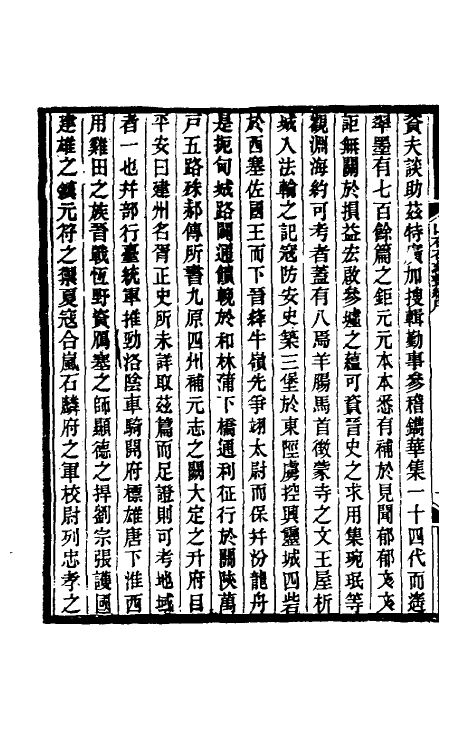 資夫談助茲特廣加搜輯勤事參稽鐫華集一十四代而遙
翠墨有七百餘篇之鉅元元本本悉有補於見聞郁郁文文
詎無關於損益宏啟參墟之蘊可資晉史之求用集琬珉等
觀淵海約可考者蓋有八焉羊腸馬首徵蒙寺之文王屋析
城入法輪之記寇防安史築三堡於東陘虜控興靈城四砦
於西塞佐國王而下晉絳牛嶺先爭翊太尉而保并汾龍舟
是扼甸城路闢通饋輓於和林蒲下橋通利征行於關陝萬
戶五路珠郝傳所書九原四州補元志之闕大定之升府目
平安曰建州名胥正史所未詳取茲篇而足證則可考地域
者一也幷部行臺統軍推勁洛陰車騎開府標雄唐下淮西
用雞田之族晉戰恆野資鴈塞之師顯德之捍劉宗張護國
建雄之鎮元符之禦夏寇合嵐石麟府之軍校尉列忠孝之